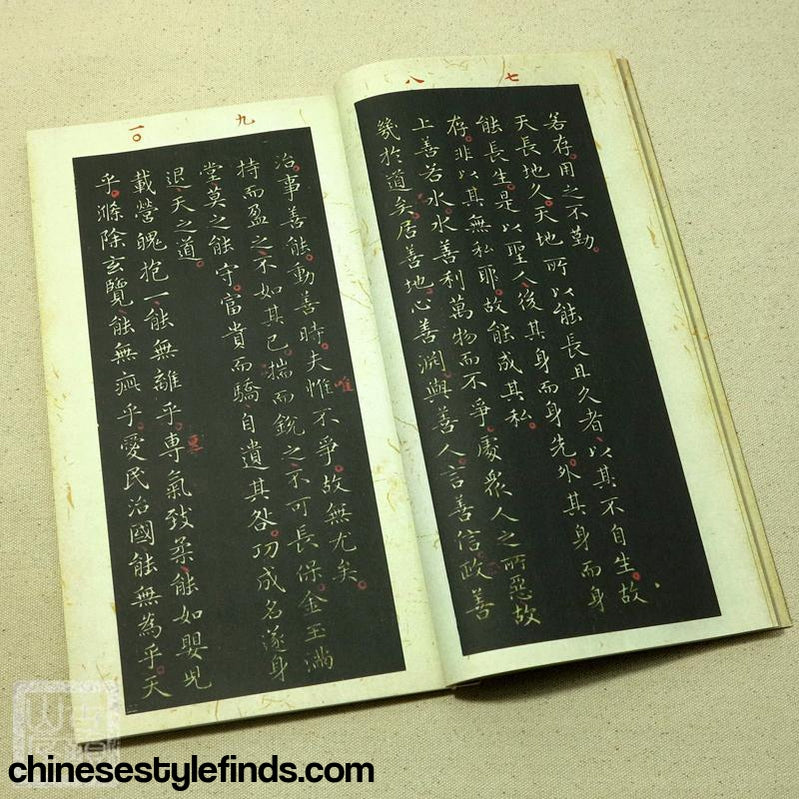 七
八
若存用之不勤。
天長地久、天地所以能長且久者、以其不自生。故
能長生。是以聖人、後其身而身先。外其身而身
存。非以其無私耶。故能成其私。
上善若水。水善利萬物而不爭。處衆人之所惡。故
幾於道矣。居善地。心善淵。與善人。言善信。政善
九
一〇
治。事善能。動善時。夫惟不爭。故無尤矣。
唯
持而盈之、不如其已。揣而銳之、不可長保。金玉滿
堂、莫之能守。富貴而驕、自遺其咎。功成名遂身
退、天之道。
載營魄抱一、能無離乎。專氣致柔、能如嬰兒
乎。滌除玄覽、能無疵乎。愛民治國、能無為乎。天
chinesestylefinds.com